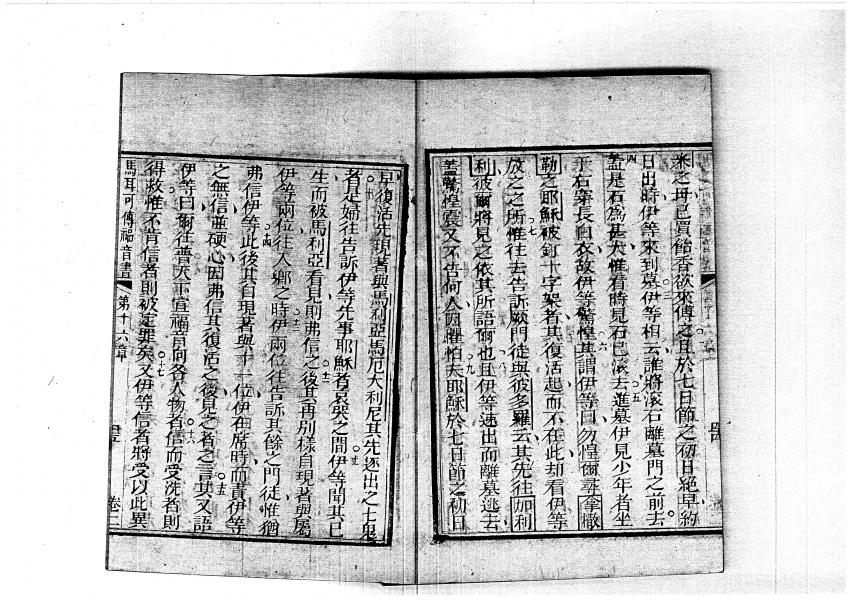 米之母已買餙香欲來傅之且於七日節之初日絕早約
日出時伊等來到墓伊等相云誰將滚石離墓門之前去
蓋是石為甚大惟看時見石已滚去進墓伊見少年者坐
于右穿長白衣故伊等驚惶其謂伊等曰勿惶爾尋拿撒
勒之耶穌被釘十字架者其復活起而不在此却看伊等
放之之所惟往去告訴厥門徒與彼多羅云其先往加利
利彼爾將見之依其所語爾也且伊等速出而離墓逃去
蓋驚惶震又不告何人因懼怕夫耶穌於七日節之初日
早復活先現著與馬利亞馬厄大利尼其先逐出之七鬼
者是婦往告訴伊等先事耶穌者哀哭之間伊等聞其已
生而被馬利亞看見則弗信之後其再別樣自現著與屬
伊等兩位往入鄉之時伊兩位往告訴其餘之門徒惟猶
弗信伊等此後其自現著與十一位伊在席時而責伊等
之無信並硬心因弗信其復活之後見之者之言其又語
伊等曰爾往普天下宣福音向各人物者信而受洗者則
得救惟不肯信者則被定罪矣又伊等信者將受以此異
馬耳可傳福音書 第十六章 卷二